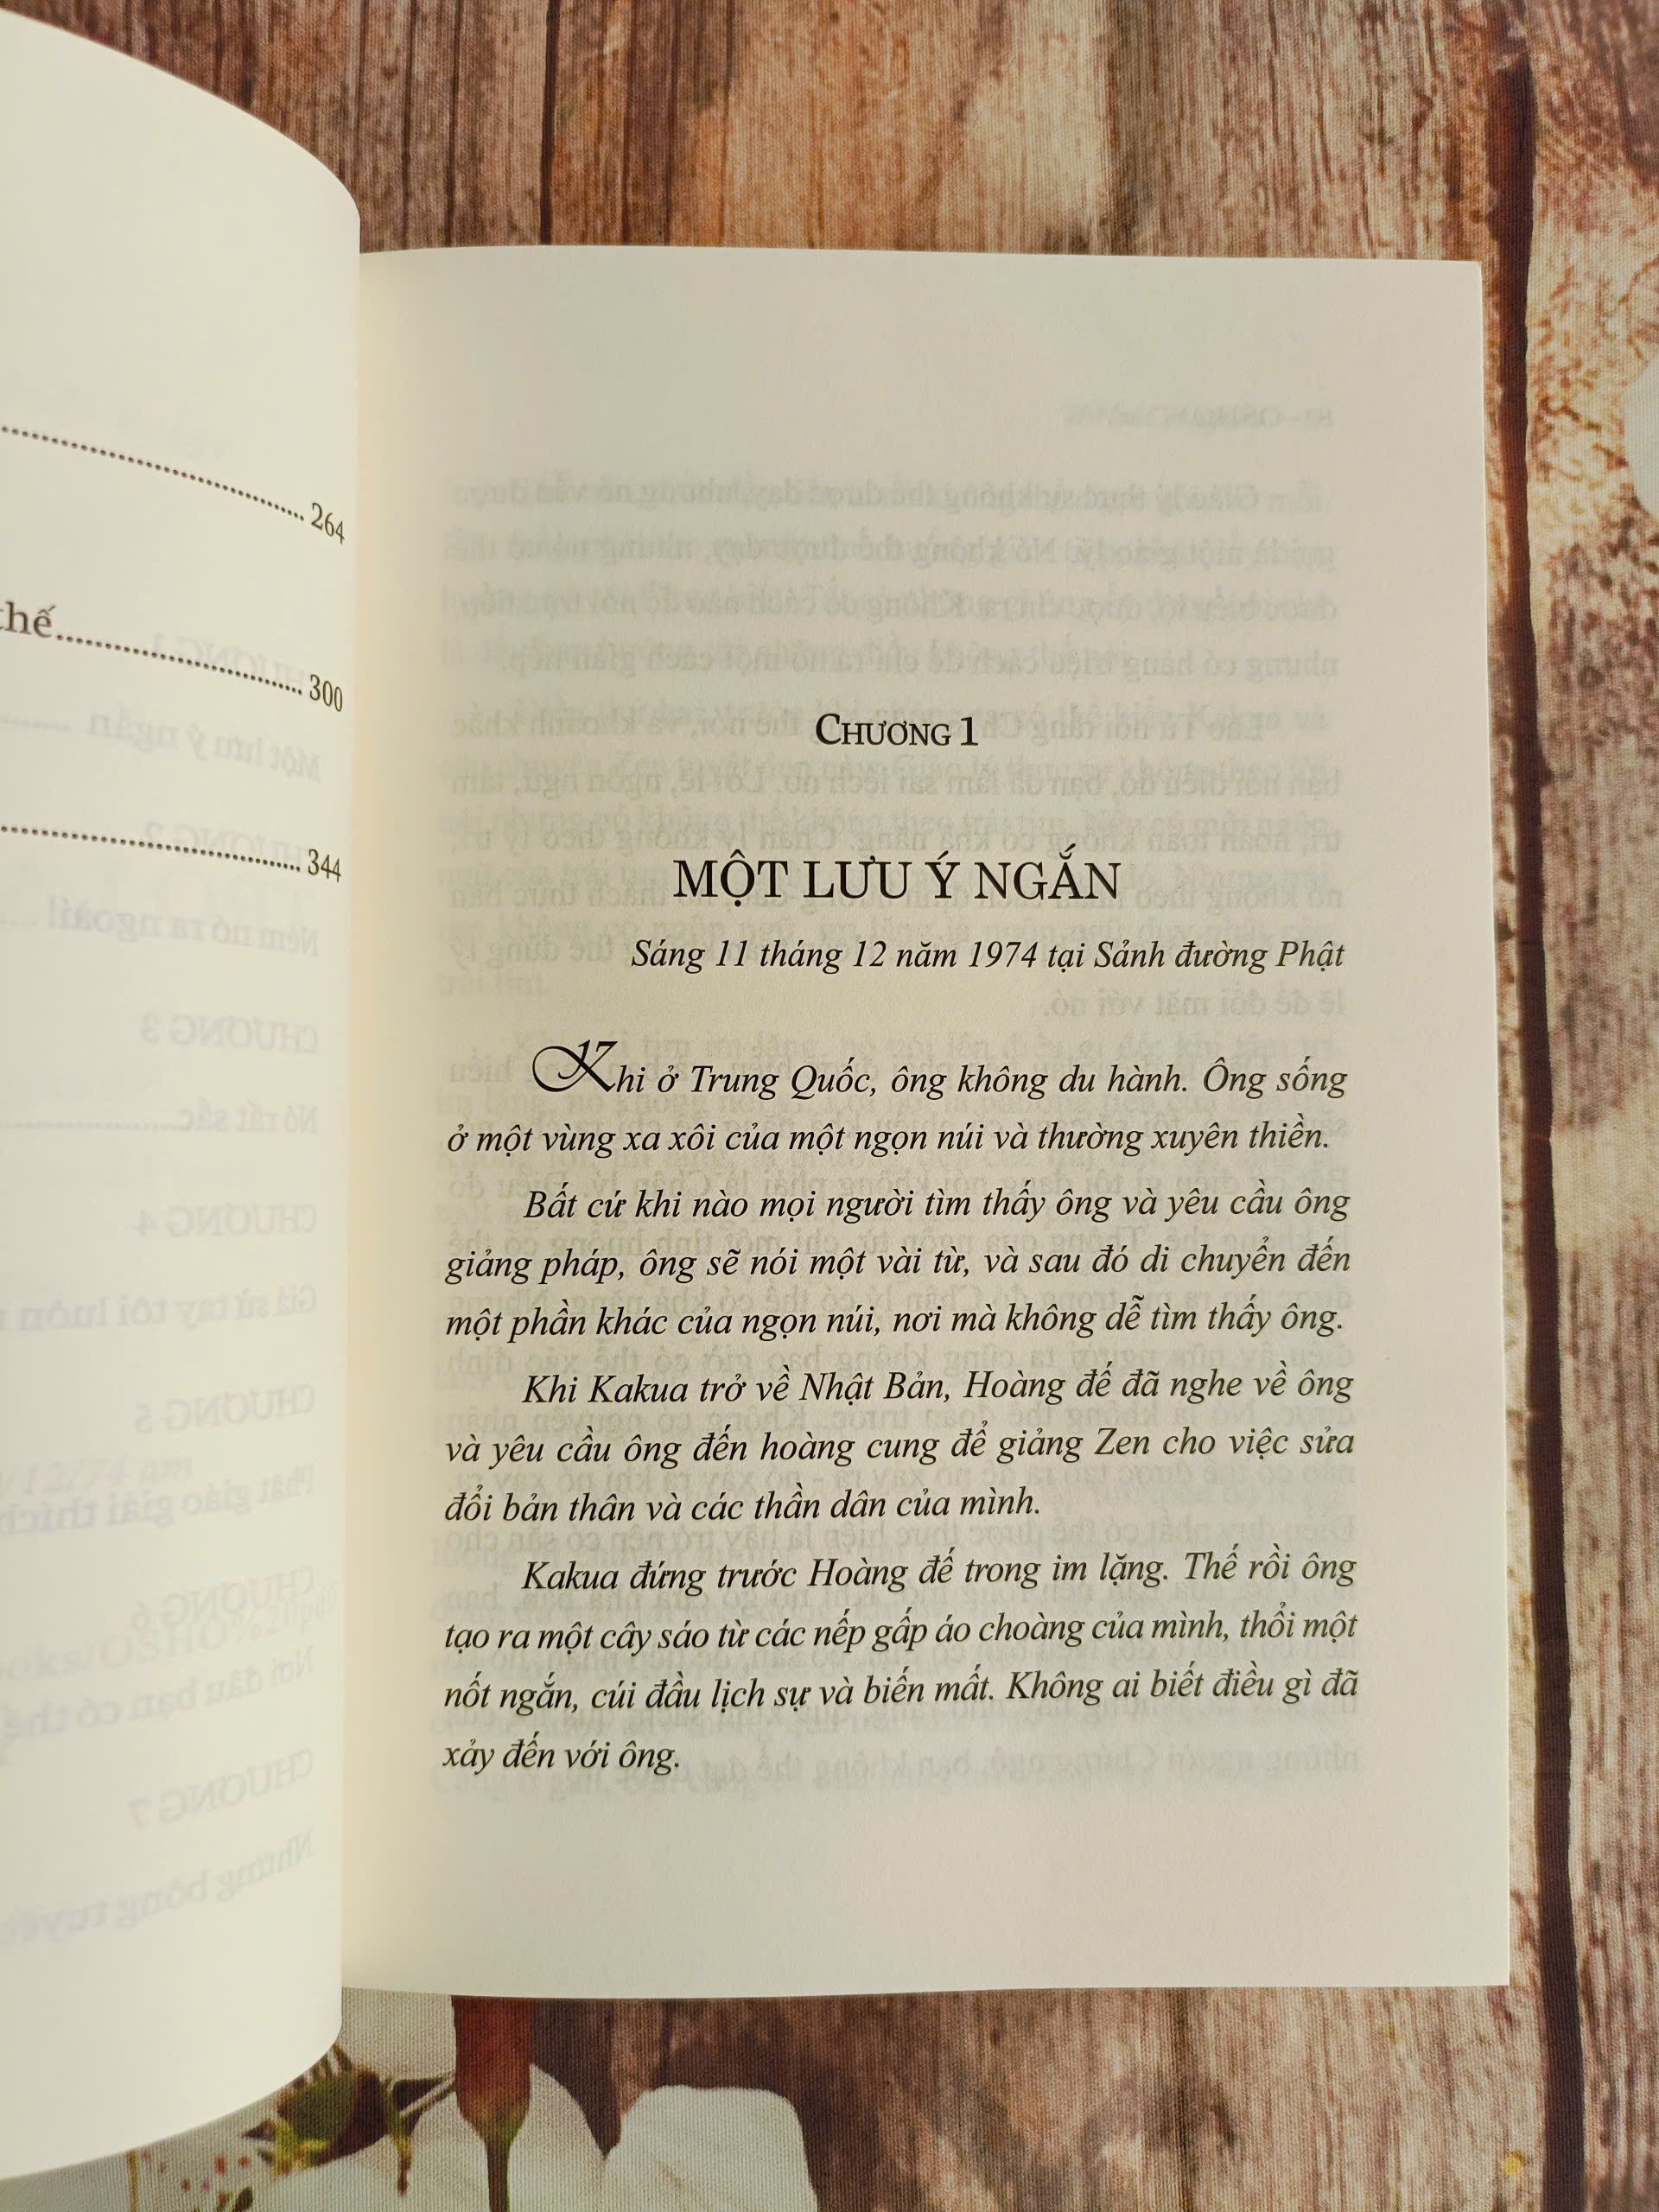 264
thế 300
344
CHƯƠNG 1
MỘT LƯU Ý NGẮN
Sáng 11 tháng 12 năm 1974 tại Sảnh đường Phật
Khi ở Trung Quốc, ông không du hành. Ông sống
ở một vùng xa xôi của một ngọn núi và thường xuyên thiền.
Bất cứ khi nào mọi người tìm thấy ông và yêu cầu ông
giảng pháp, ông sẽ nói một vài từ, và sau đó di chuyển đến
một phần khác của ngọn núi, nơi mà không dễ tìm thấy ông.
Khi Kakua trở về Nhật Bản, Hoàng đế đã nghe về ông
và yêu cầu ông đến hoàng cung để giảng Zen cho việc sửa
đổi bản thân và các thần dân của mình.
Kakua đứng trước Hoàng đế trong im lặng. Thế rồi ông
tạo ra một cây sáo từ các nếp gấp áo choàng của mình, thổi một
nốt ngắn, cúi đầu lịch sự và biến mất. Không ai biết điều gì đã
xảy đến với ông.